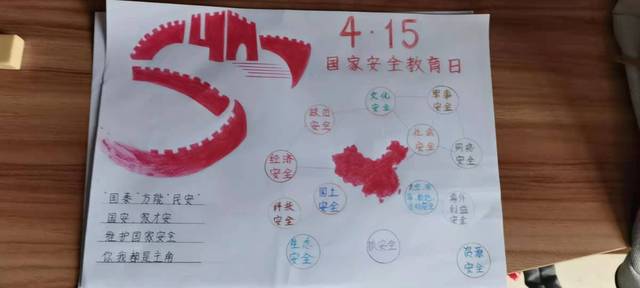 4·15
国家安全教育日
文化
安全
军事
安全
政治
安全
社会
安全
网络
安全
经济
安全
国土
安全
科技
安全
海外
利益
安全
生态
安全
核安全
资源
安全
"国泰"方能"民安"
国安,家才安
维护国家安全
你我都是主角